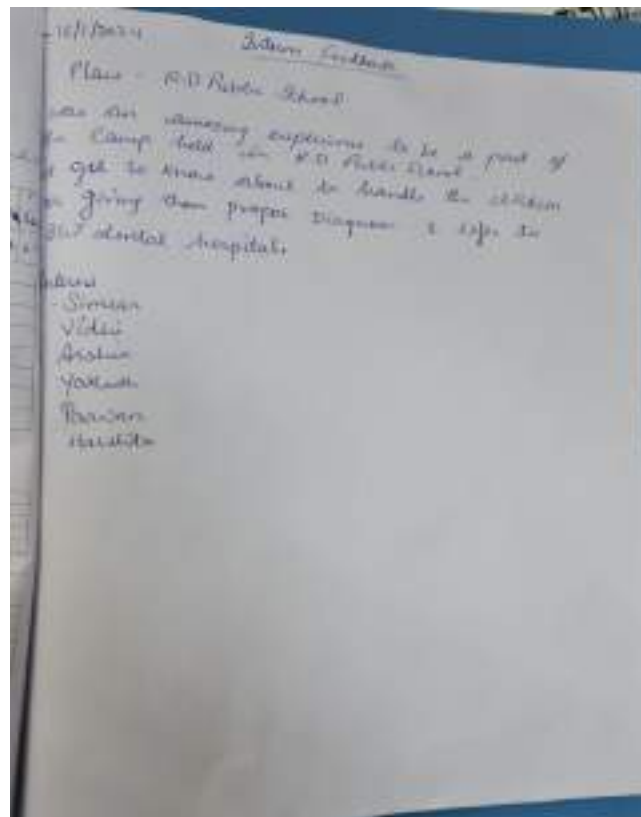 Intern Feedback
Place - R.D Public School
was an amazing experience to be a part of
Camp held in R.D Public School
get to know about to handle the children
giving them proper Diagnosis & refer to
dental hospital.
Simran
Yakuth
Pawan
Harshita